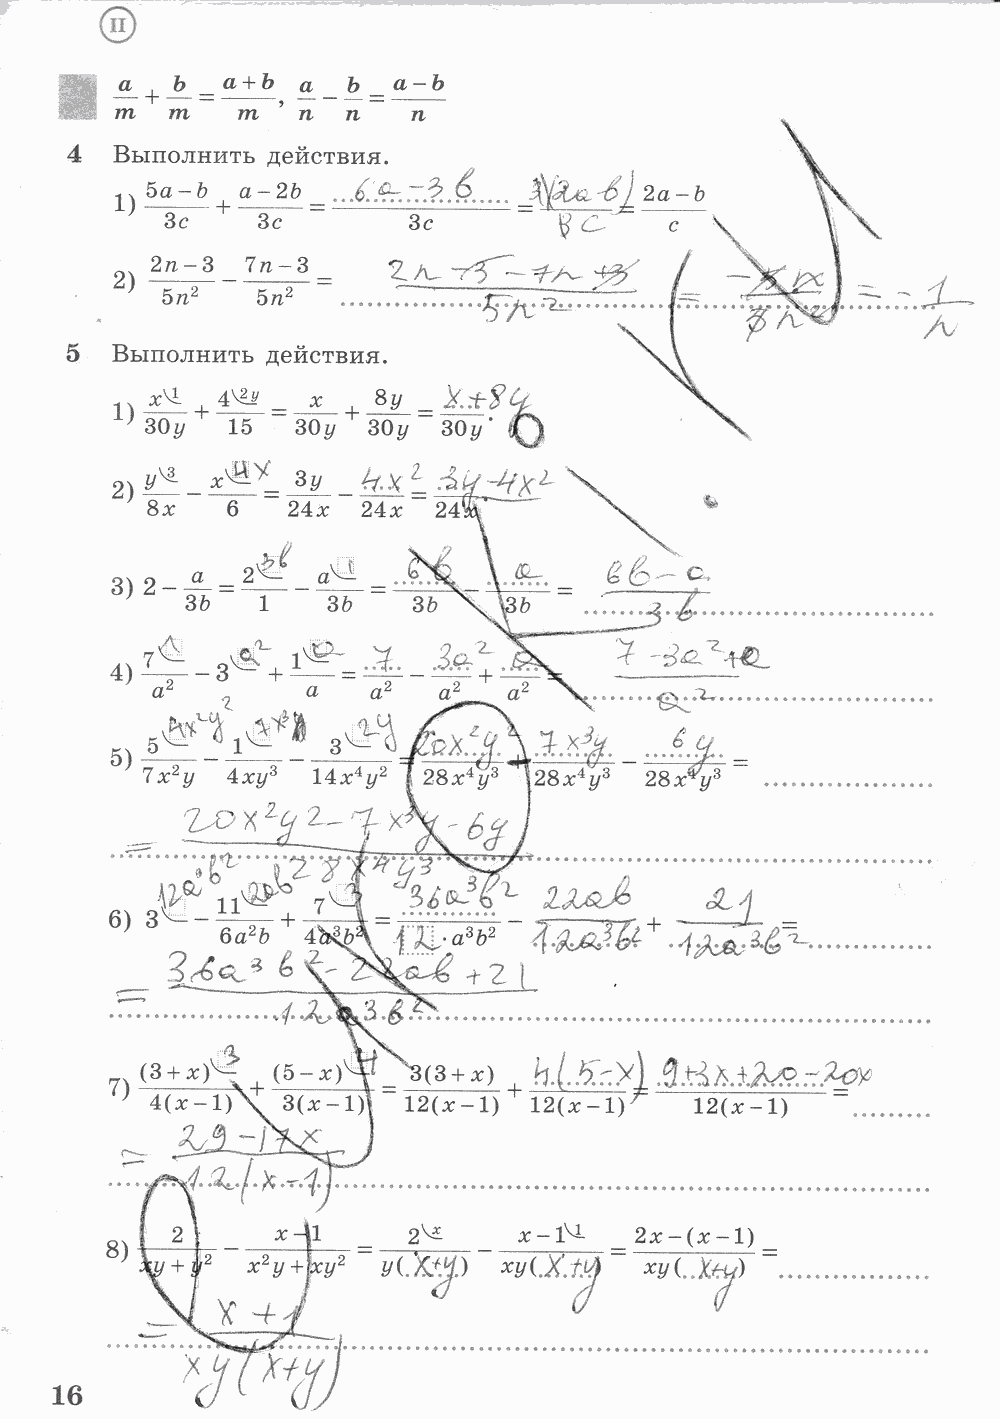 II
a/m + b/m = (a + b)/m, a/n − b/n = (a − b)/n
4 Выполнить действия.
1) (5a − b)/3c + (a − 2b)/3c = (6a − 3b)/3c = 3(2a − b)/3c = (2a − b)/c
2) (2n − 3)/5n² − (7n − 3)/5n² = (2n − 3 − 7n + 3)/5n² = −5n/5n² = −1/n
5 Выполнить действия.
1) x\1/30y + 4\2y/15 = x/30y + 8y/30y = (x + 8y)/30y.
2) y\3/8x − x\4x/6 = 3y/24x − 4x²/24x = (3y − 4x²)/24x.
3) 2 − a/3b = 2\3b/1 − a\1/3b = 6b/3b − a/3b = (6b − a)/3b
4) 7\1/a² − 3\a² + 1\a/a = 7/a² − 3a²/a² + a/a² = (7 − 3a² + a)/a²
5) 5\4x²y²/7x²y − 1\7x³y/4xy³ − 3\2y/14x⁴y² = 20x²y²/28x⁴y³ − 7x³y/28x⁴y³ − 6y/28x⁴y³ =
= (20x²y² − 7x³y − 6y)/28x⁴y³
6) 3\12a³b² − 11\2ab/6a²b + 7\3/4a³b² = 36a³b²/12·a³b² − 22ab/12a³b² + 21/12a³b² =
= (36a³b² − 22ab + 21)/12a³b²
7) (3 + x)\3/4(x − 1) + (5 − x)\4/3(x − 1) = 3(3 + x)/12(x − 1) + 4(5 − x)/12(x − 1) = (9 + 3x + 20 − 20x)/12(x − 1) =
= (29 − 17x)/12(x − 1)
8) 2/(xy + y²) − (x − 1)/(x²y + xy²) = 2\x/y(x + y) − x − 1\1/xy(x + y) = (2x − (x − 1))/xy(x + y) =
= (x + 1)/xy(x + y)
16